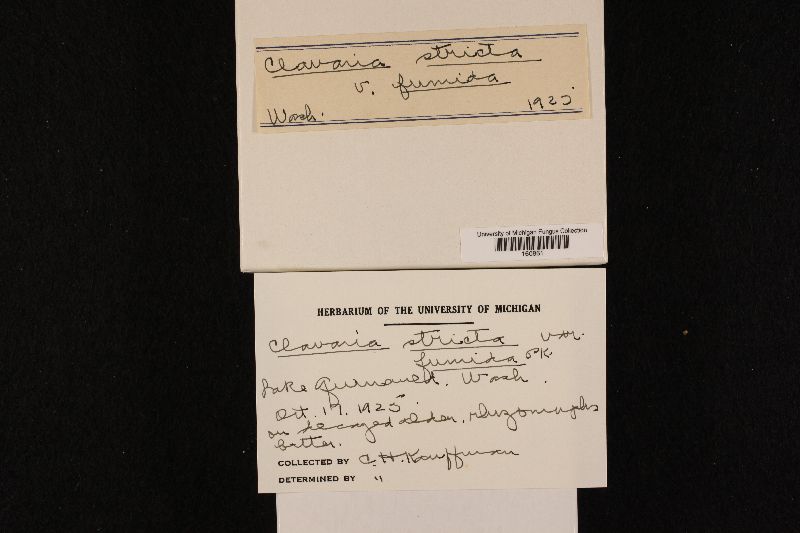 Clavaria stricta
v. fumida
Wash. 1925
University of Michigan Fungus Collection
160861
HERBARIUM OF THE UNIVERSITY OF MICHIGAN
Clavaria stricta var.
fumida Pk.
Lake Quinault, Wash.
Oct. 17. 1925.
on decayed alder, rhizomorphs
bitter.
COLLECTED BY C.H. Kauffman
DETERMINED BY "